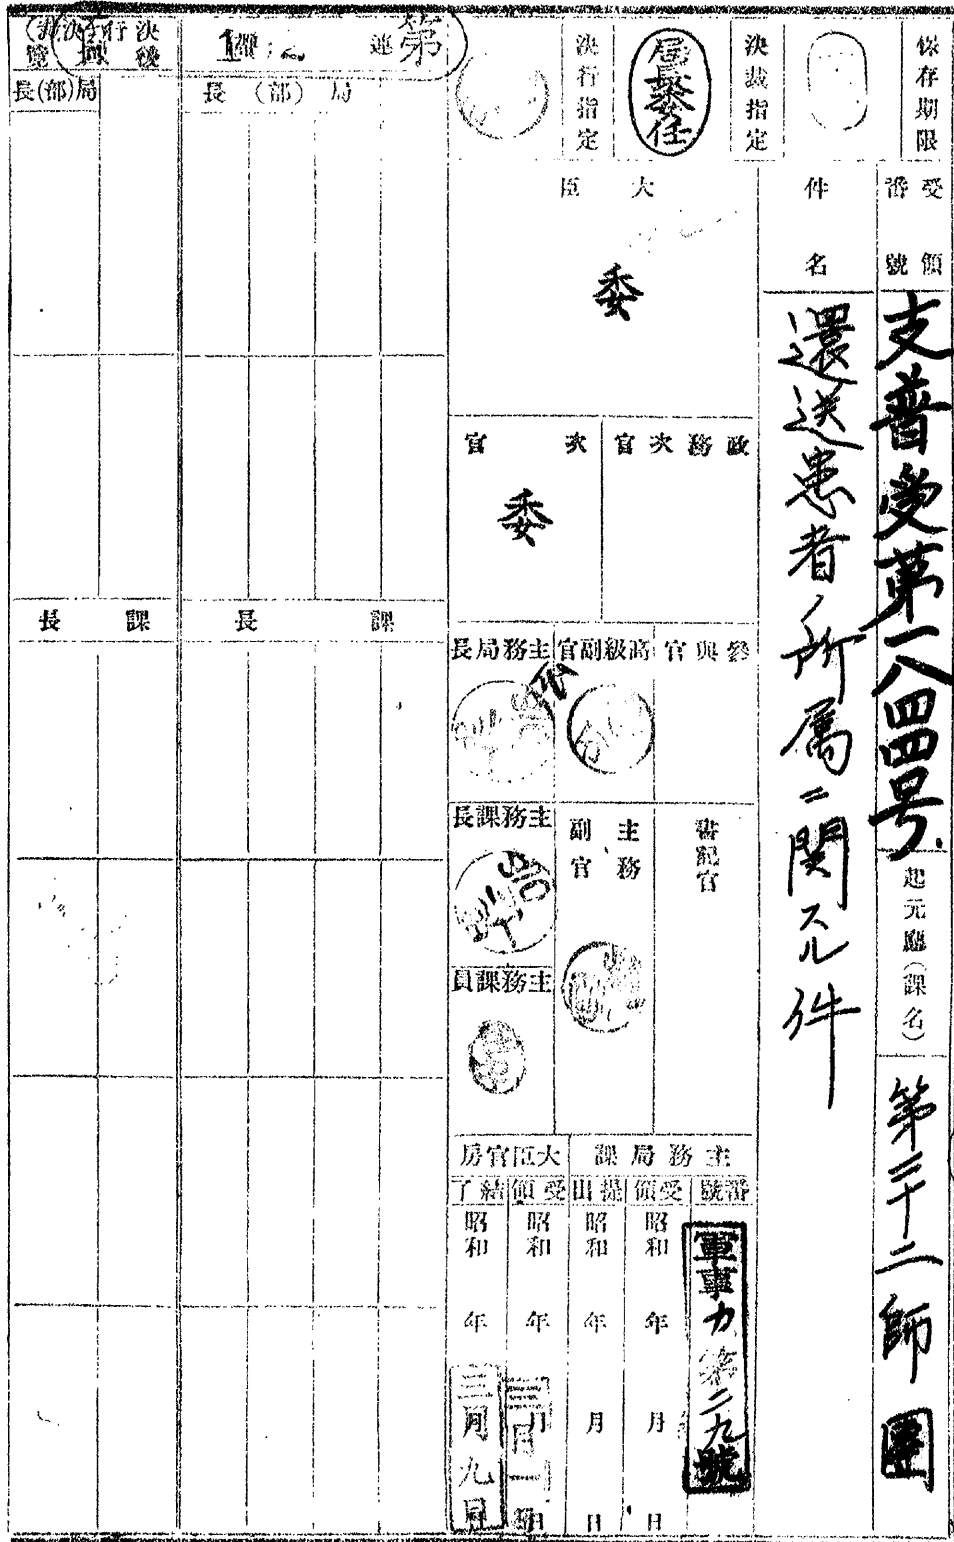 保存期限
決裁指定
局長委任
決行指定
第
連
1
2
決行後
受領番號
支普受第一八四四号
起元廳(課名)
第三十二師團
件名
還送患者ノ所属ニ関スル件
大臣
委
政務次官
次官
委
參與官
高級副官
主務局長
書記官
主務副官
主務課長
主務課員
主務局課
番號
軍事力第二九號
受領
昭和 年 月 日
提出
昭和 年 月 日
大臣官房
受領
昭和 年 三月一日
結了
昭和 年 三月九日
局(部)長
課長
局(部)長
課長